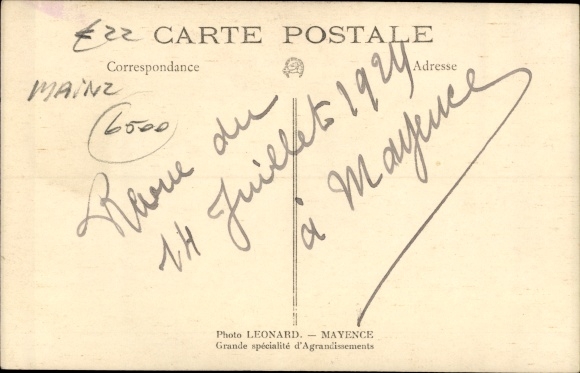 €22 CARTE POSTALE
Correspondance Adresse
MAINZ
6500
Revue du
14 Juillet 1924
à Mayence
Photo LEONARD. — MAYENCE
Grande spécialité d'Agrandissements